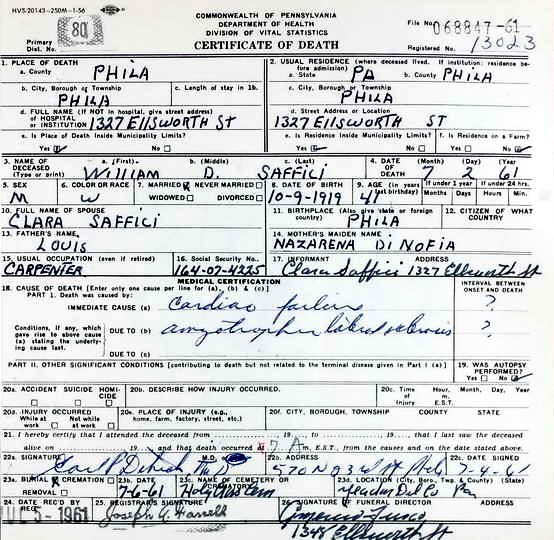 HVS-20143-250M-1-56
COMMONWEALTH OF PENNSYLVANIA
DEPARTMENT OF HEALTH
DIVISION OF VITAL STATISTICS
CERTIFICATE OF DEATH
File No. 068847-61
Registered No. 13023
Primary Dist. No. 80
1. PLACE OF DEATH
a. County PHILA
2. USUAL RESIDENCE (where deceased lived. If institution: residence before admission)
a. State PA b. County PHILA
b. City, Borough or Township PHILA
c. Length of stay in 1b.
c. City, Borough or Township PHILA
d. FULL NAME (If NOT in hospital, give street address) OF HOSPITAL OR INSTITUTION 1327 ELLSWORTH ST
d. Street Address or Location
1327 ELLSWORTH ST
e. Is Place of Death Inside Municipality Limits?
Yes No
e. Is Residence Inside Municipality Limits?
Yes No
f. Is Residence on a Farm?
Yes No
3. NAME OF DECEASED (Type or print)
a. (First) WILLIAM
b. (Middle) D.
c. (Last) SAFFICI
4. DATE OF DEATH (Month) (Day) (Year)
7 2 61
5. SEX M
6. COLOR OR RACE W
7. MARRIED NEVER MARRIED
WIDOWED DIVORCED
8. DATE OF BIRTH
10-9-1919
9. AGE (in years last birthday) 41
If under 1 year Months Days
If under 24 hrs. Hours Min.
10. FULL NAME OF SPOUSE
CLARA SAFFICI
11. BIRTHPLACE (Also give state or foreign country)
PHILA
12. CITIZEN OF WHAT COUNTRY?
13. FATHER'S NAME
LOUIS
14. MOTHER'S MAIDEN NAME
NAZARENA DI NOFIA
15. USUAL OCCUPATION (even if retired)
CARPENTER
16. Social Security No.
164-07-4225
17. INFORMANT ADDRESS
Clara Saffici 1327 Ellsworth St
MEDICAL CERTIFICATION
18. CAUSE OF DEATH [Enter only one cause per line for (a), (b) & (c)]
PART 1. Death was caused by:
INTERVAL BETWEEN ONSET AND DEATH
IMMEDIATE CAUSE (a) Cardiac failure ?
Conditions, if any, which gave rise to above cause (a) stating the underlying cause last.
DUE TO (b) amyotrophic lateral sclerosis ?
DUE TO (c)
PART II. OTHER SIGNIFICANT CONDITIONS (contributing to death but not related to the terminal disease given in Part I (a)
19. WAS AUTOPSY PERFORMED?
Yes No
20a. ACCIDENT SUICIDE HOMICIDE
20b. DESCRIBE HOW INJURY OCCURRED.
20c. Time of Injury Hour, m. E.S.T. Month, Day, Year
20d. INJURY OCCURRED
While at work Not while at work
20e. PLACE OF INJURY (e.g., home, farm, factory, street, etc.)
20f. CITY, BOROUGH, TOWNSHIP COUNTY STATE
21. I hereby certify that I attended the deceased from 19 to 19 that I last saw the deceased
alive on 19 and that death occurred at 7 A m., E.S.T., from the causes and on the date stated above.
22a. SIGNATURE M.D.
22b. ADDRESS
22c. DATE SIGNED
7-4-61
23a. BURIAL CREMATION REMOVAL
23b. DATE
7-6-61
23c. NAME OF CEMETERY OR CREMATORY
Holy Cross Cem
23d. LOCATION (City, Boro, Twp. & County) (State)
Yeadon Del Co Pa
24. DATE REC'D BY REG.
1961
25. REGISTRAR'S SIGNATURE
Joseph A. Farrell
26. SIGNATURE OF FUNERAL DIRECTOR ADDRESS
1348 Ellsworth St